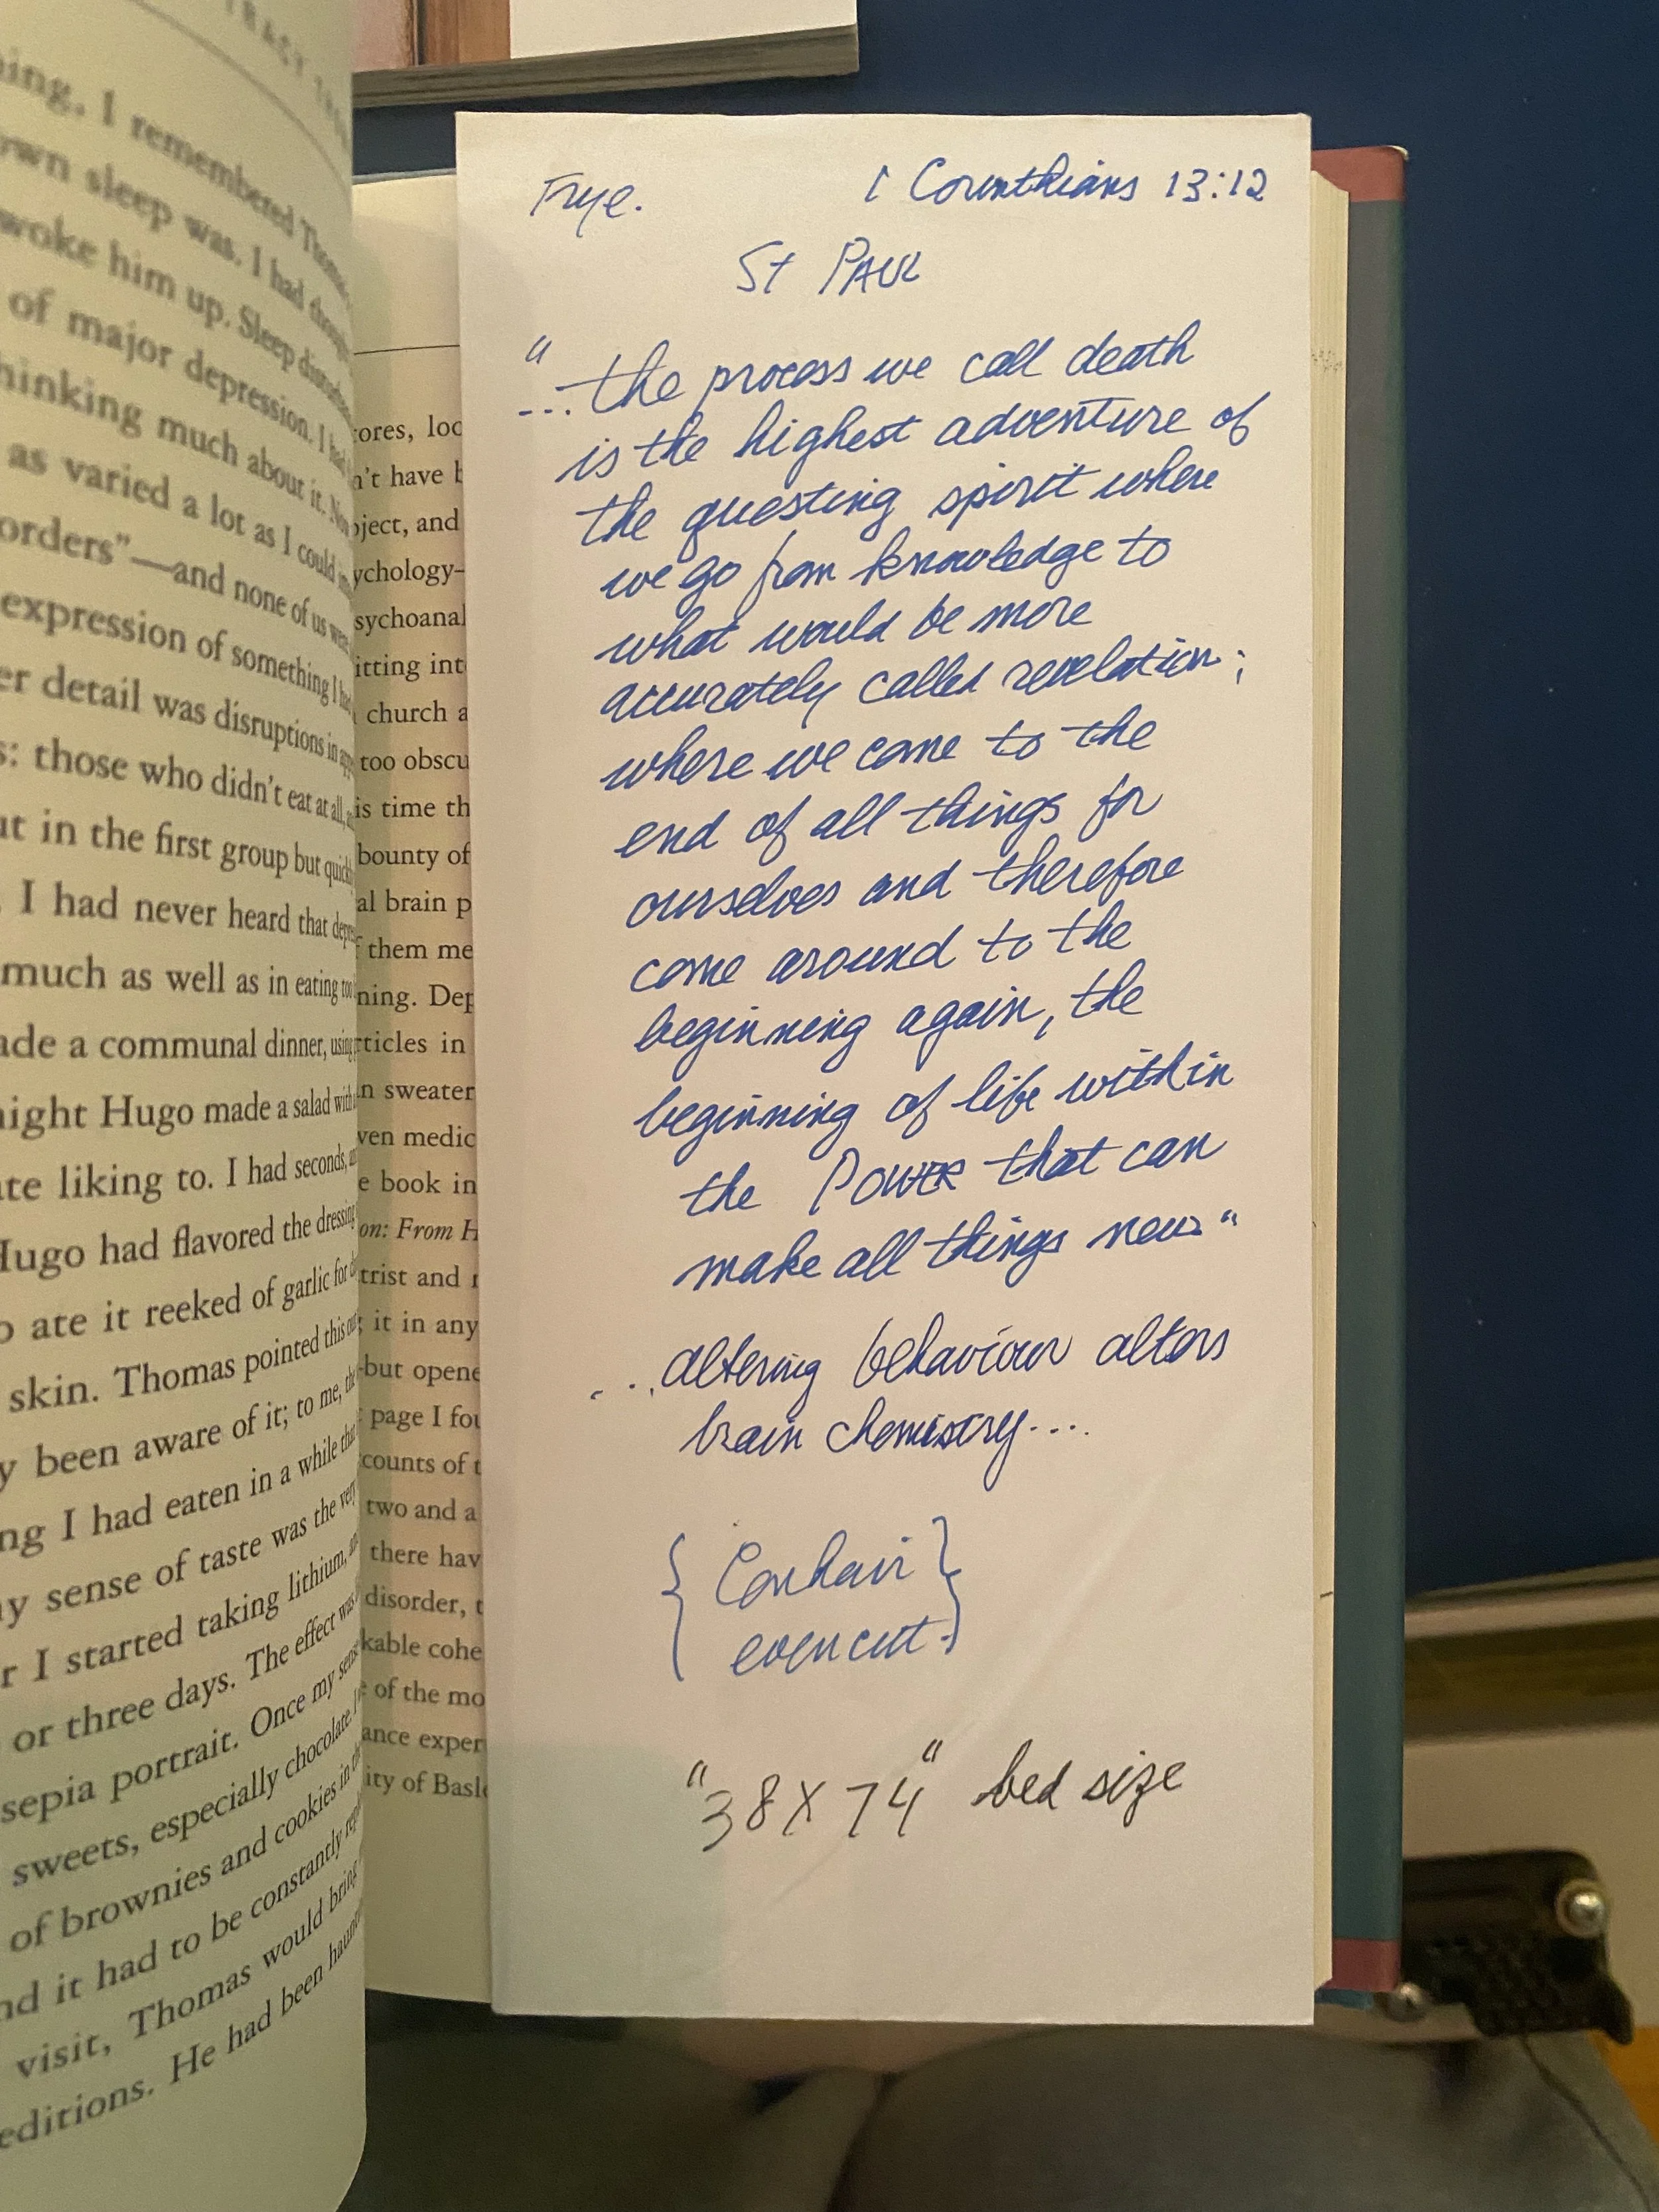 TRACT
ing. I remembered Thomas
own sleep was. I had
woke him up. Sleep
of major depression. I had
hinking much about it.
as varied a lot as I could
orders”—and none of us
expression of something I
er detail was disruptions in
s: those who didn’t eat at all,
ut in the first group but
I had never heard that
much as well as in eating too
ade a communal dinner, using
night Hugo made a salad with
ate liking to. I had seconds,
Hugo had flavored the dressing
o ate it reeked of garlic for
skin. Thomas pointed this out
y been aware of it; to me, the
ng I had eaten in a while that
y sense of taste was the very
r I started taking lithium,
or three days. The effect was
sepia portrait. Once my
sweets, especially chocolate.
of brownies and cookies in
nd it had to be constantly
visit, Thomas would bring
editions. He had been
ores, loc
n’t have b
ject, and
ychology–
sychoanal
itting int
church a
too obscu
is time th
bounty of
al brain p
them me
ning. Dep
ticles in
n sweater
ven medic
e book in
on: From H
trist and
it in any
but opene
page I fou
counts of t
two and a
there hav
disorder, t
kable cohe
of the mo
ance exper
ity of Basl
Frye. 1 Corinthians 13:12
St PAUL
"...the process we call death
is the highest adventure of
the questing spirit where
we go from knowledge to
what would be more
accurately called revelation;
where we come to the
end of all things for
ourselves and therefore
come around to the
beginning again, the
beginning of life within
the Power that can
make all things new"
...altering behaviour alters
brain chemistry....
{ Conhair }
even cut.
"38 X 74" bed size